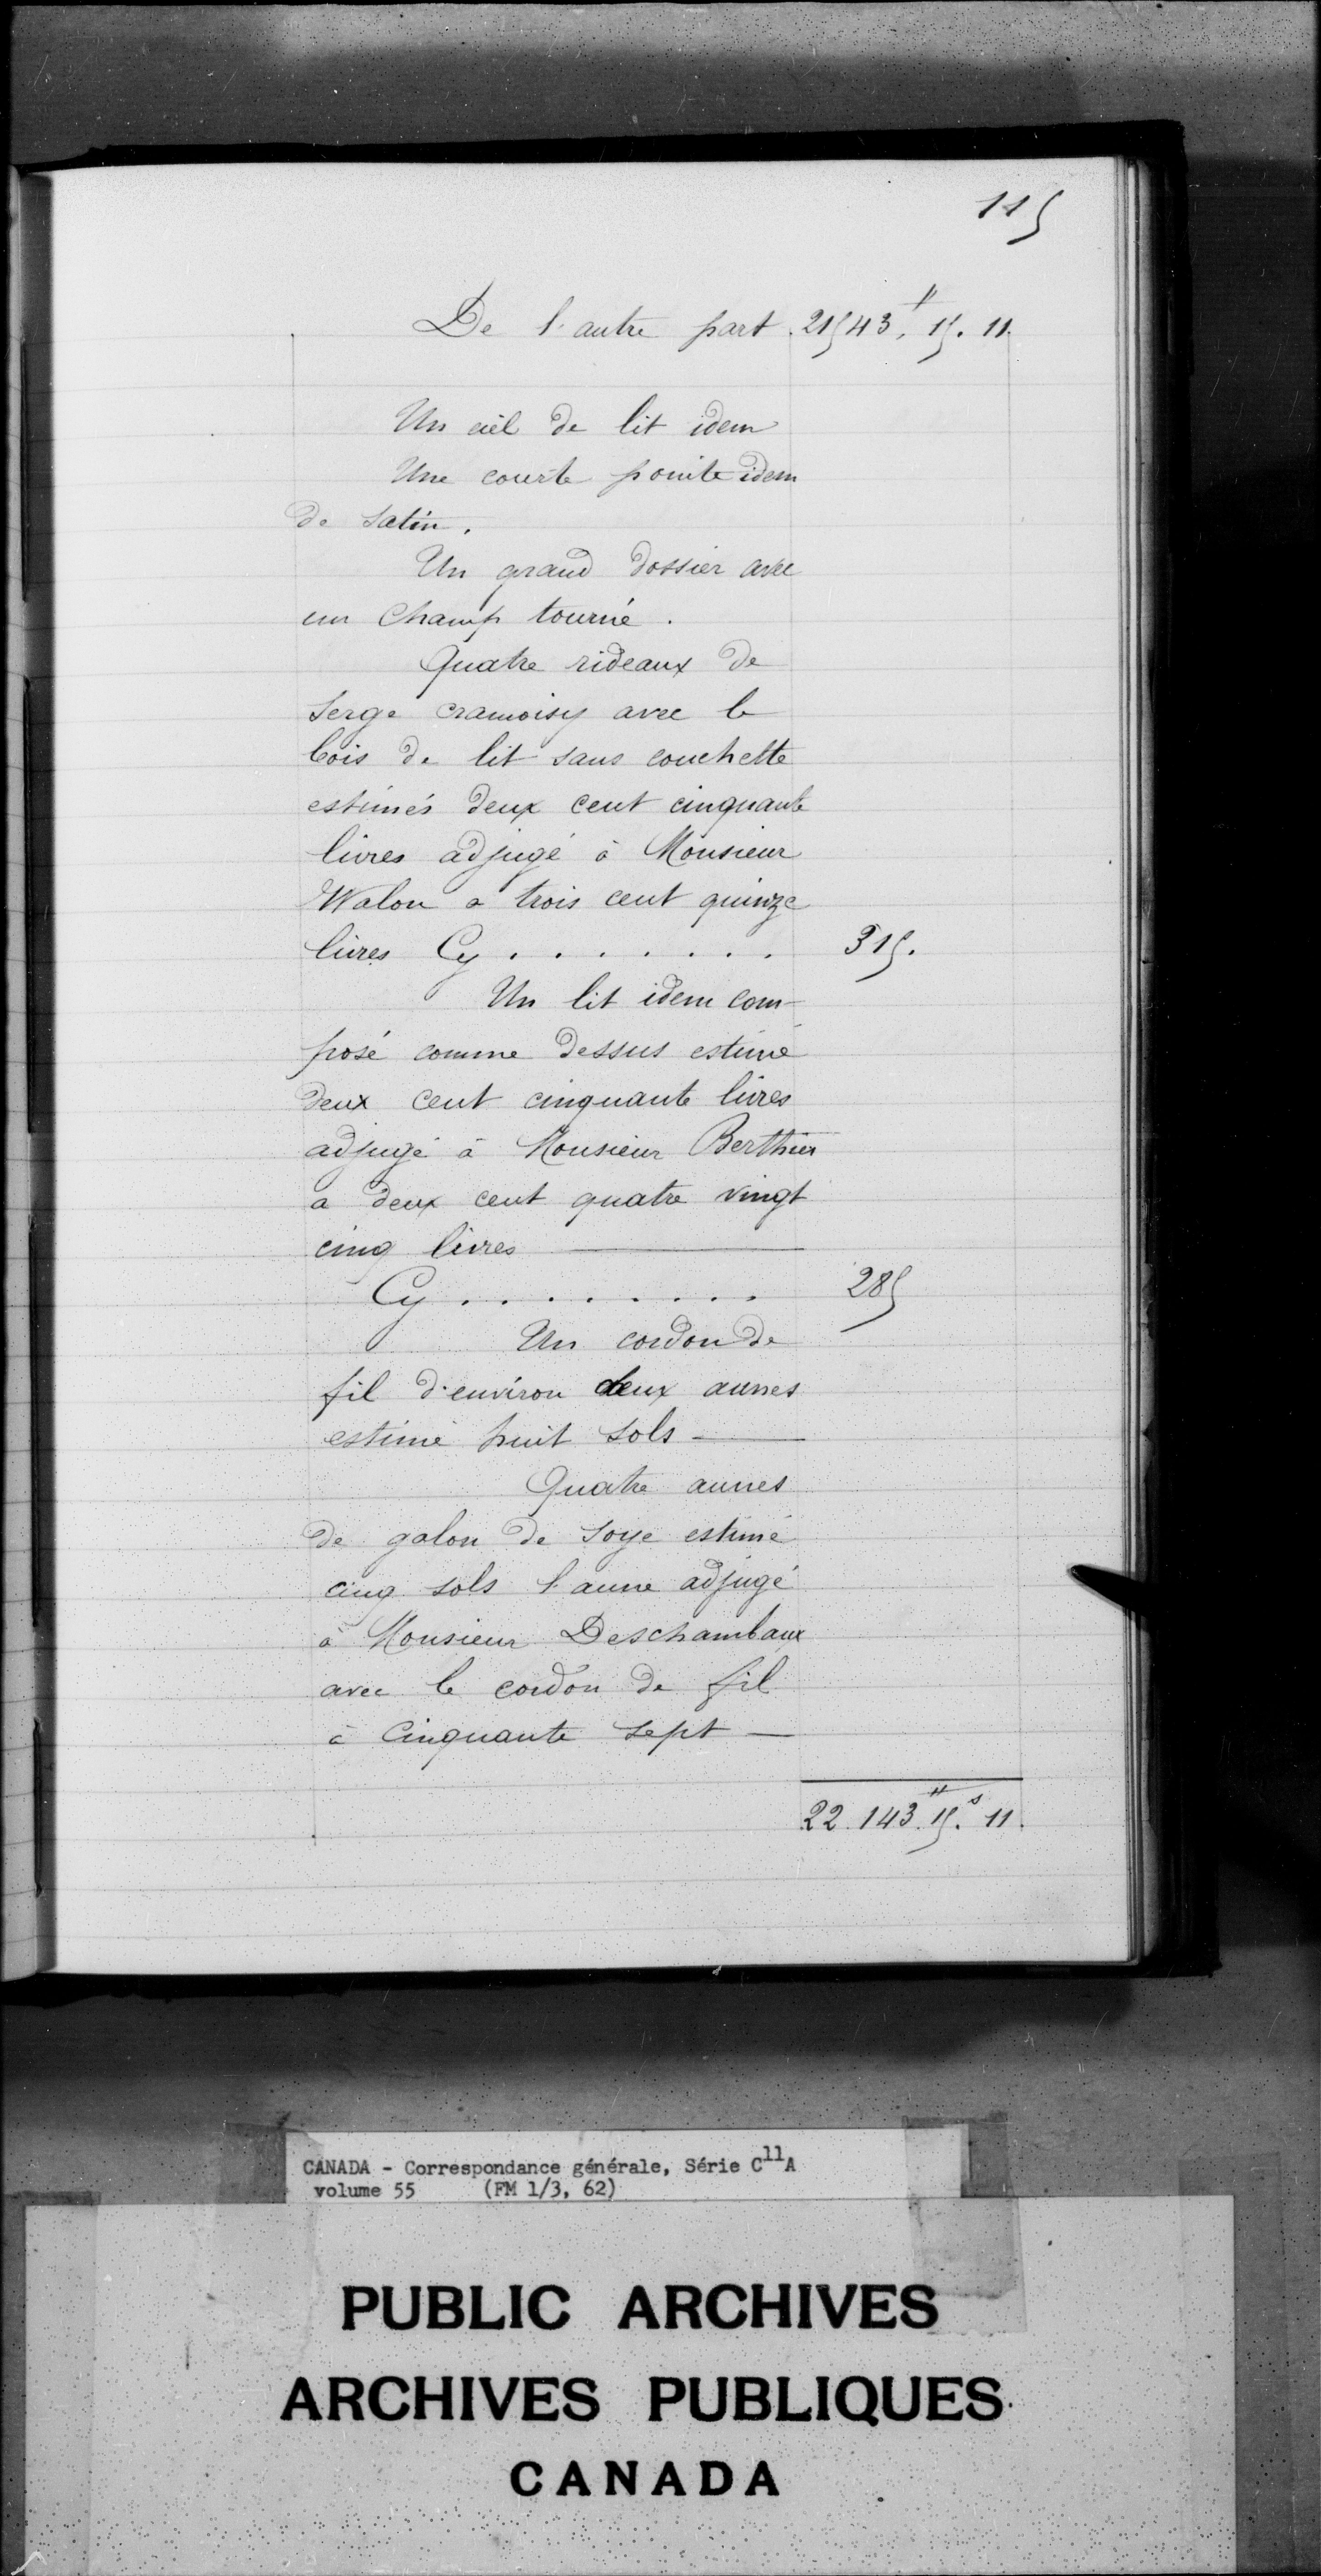 115
De l'autre part. 21543.# 15. 11.
Un ciel de lit idem
Une courte pointe idem
de satin.
Un grand dossier avec
un Champ tourné.
Quatre rideaux de
serge cramoisy avec le
bois de lit sans couchette
estimés deux cent cinquante
livres adjugé à Monsieur
Walon a trois cent quinze
livres Cy . . . . . . . 315.
Un lit idem com-
posé comme dessus estimé
deux cent cinquante livres
adjugé à Monsieur Berthier
a deux cent quatre vingt
cinq livres —
Cy . . . . . . . . 285
Un cordon de
fil d'environ deux aunes
estimé huit sols —
Quatre aunes
de galon de soye estimé
cinq sols l'aune adjugé
à Monsieur Deschambaux
avec le cordon de fil
à Cinquante sept —
22.143.# 15.s 11.
CANADA - Correspondance générale, Série C11A
volume 55 (FM 1/3, 62)
PUBLIC ARCHIVES
ARCHIVES PUBLIQUES
CANADA